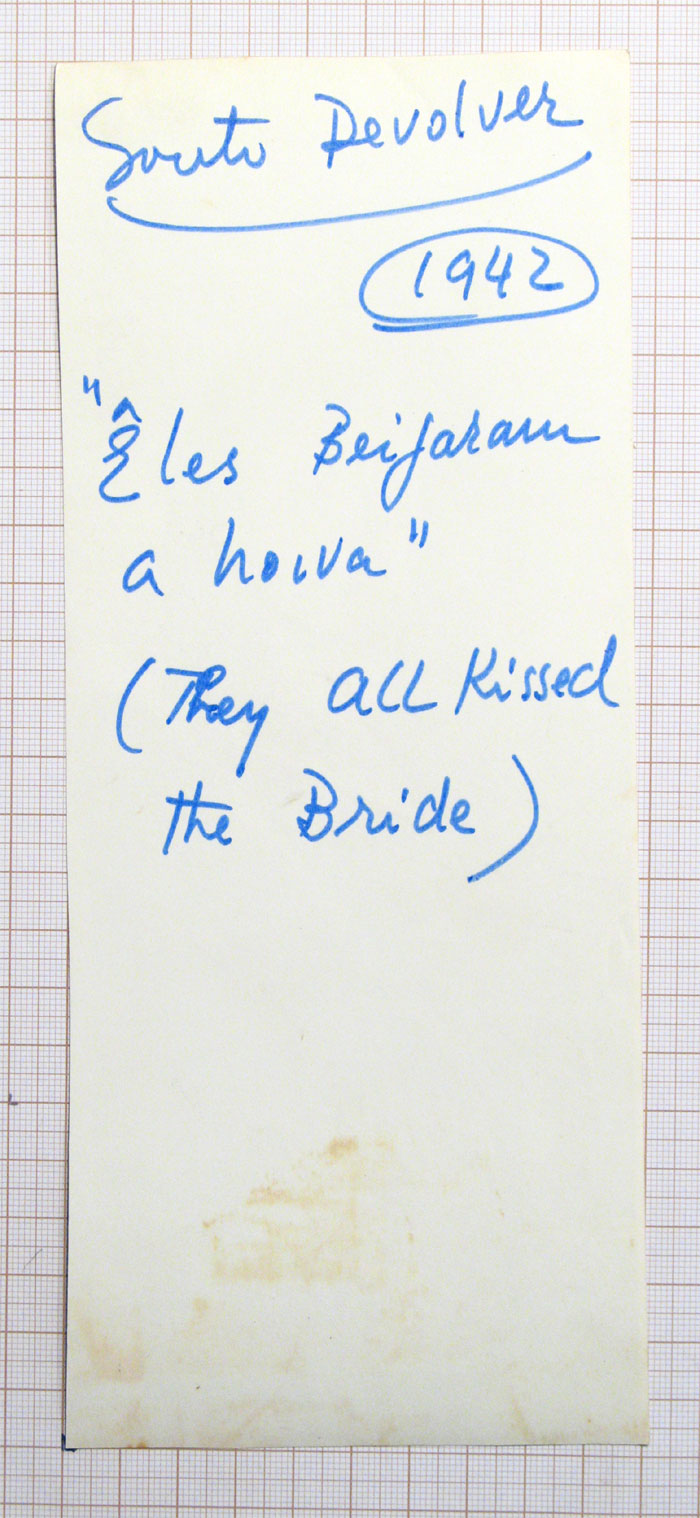 Souto Devolver
1942
"Êles Beijaram
a noiva"
(They all Kissed
the Bride)